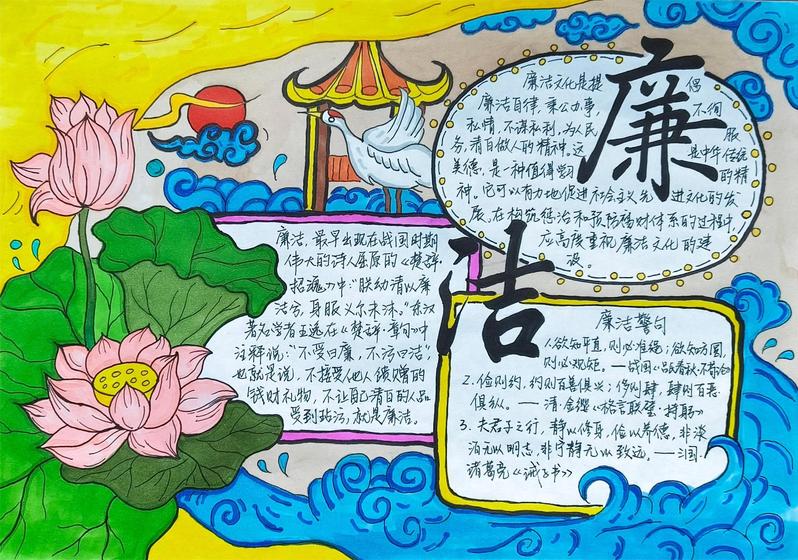 廉
洁
廉洁文化是提倡
廉洁自律，秉公办事，不徇
私情，不谋私利，为人民服
务，清白做人的精神。这是中华传统
美德，是一种值得学习的精
神。它可以有力地促进社会主义先进文化的发
展，在构筑惩治和预防腐财体系的过程中，
应高度重视廉洁文化的建
设。
廉洁，最早出现在战国时期
伟大的诗人屈原的《楚辞·
招魂》中："朕幼清以廉
洁兮，身服义尔未沫。"东汉
著名学者王逸在《楚辞·章句》中
注释说："不受曰廉，不污曰洁"，
也就是说，不接受他人馈赠的
钱财礼物，不让自己清白的人品
受到玷污，就是廉洁。
廉洁警句
1.欲知平直，则必准绳；欲知方圆，
则必规矩。——战国《吕氏春秋·不苟论》
2.俭则约，约则百善俱兴；侈则肆，肆则百恶
俱纵。——清·金缨《格言联璧·持躬》
3.夫君子之行，静以修身，俭以养德，非淡
泊无以明志，非宁静无以致远。——三国·
诸葛亮《诫子书》